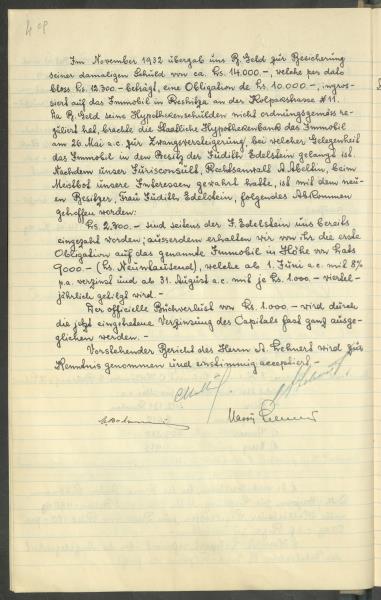 Im November 1932 übergab uns B. Geld zur Besicherung
seiner damaligen Schuld von ca. Ls. 14.000.-, welche per dato
bloss Ls. 12.300.- beträgt, eine Obligation de Ls. 10.000.-, ingros-
siert auf das Immobil in Reshitza an der Kolpakstrasse #11.
Da B. Geld seine Hypothekenschulden nicht ordnungsgemäss re-
guliert hat, brachte die Staatliche Hypothekenbank das Immobil
am 26 Mai a.c. zur Zwangsversteigerung, bei welcher Gelegenheit
das Immobil in den Besitz der Judith Edelstein gelangt ist.
Nachdem unser Jurisconsult, Rechtsanwalt A. Abelhin, beim
Meistbot unsere Interessen gewahrt hatte, ist mit dem neu-
en Besitzer, Frau Judith Edelstein, folgendes Abkommen
getroffen worden:
Ls. 2.300.- sind seitens der J. Edelstein uns bereits
eingezahlt worden; ausserdem erhalten wir von ihr die erste
Obligation auf das genannte Immobil in Höhe von Lats
9000.- (Ls. Neuntausend), welche ab 1. Juni a.c. mit 8%
p.a. verzinst und ab 31. August a.c. mit je Ls. 1.000.- viertel-
jährlich getilgt wird.-
Der officielle Buchverlust von Ls. 1.000.- wird durch
die jetzt eingetretene Verzinsung des Capitals fast ganz ausge-
glichen werden.-
Vorstehender Bericht des Herrn A. Lehnert wird zur
Kenntnis genommen und einstimmig acceptiert.-